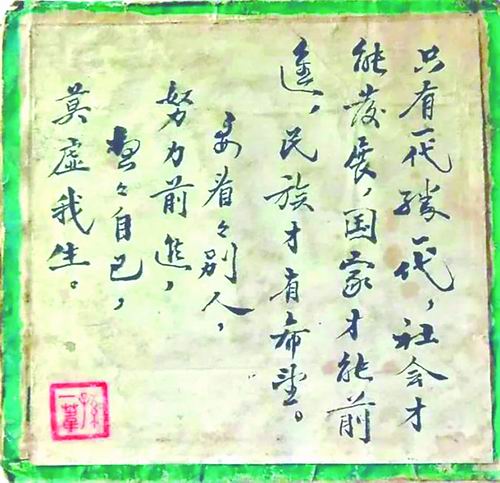 只有一代勝一代，社会才
能發展，国家才能前
進，民族才有希望。
看々别人，
努力前進，
想々自己，
莫虚我生。